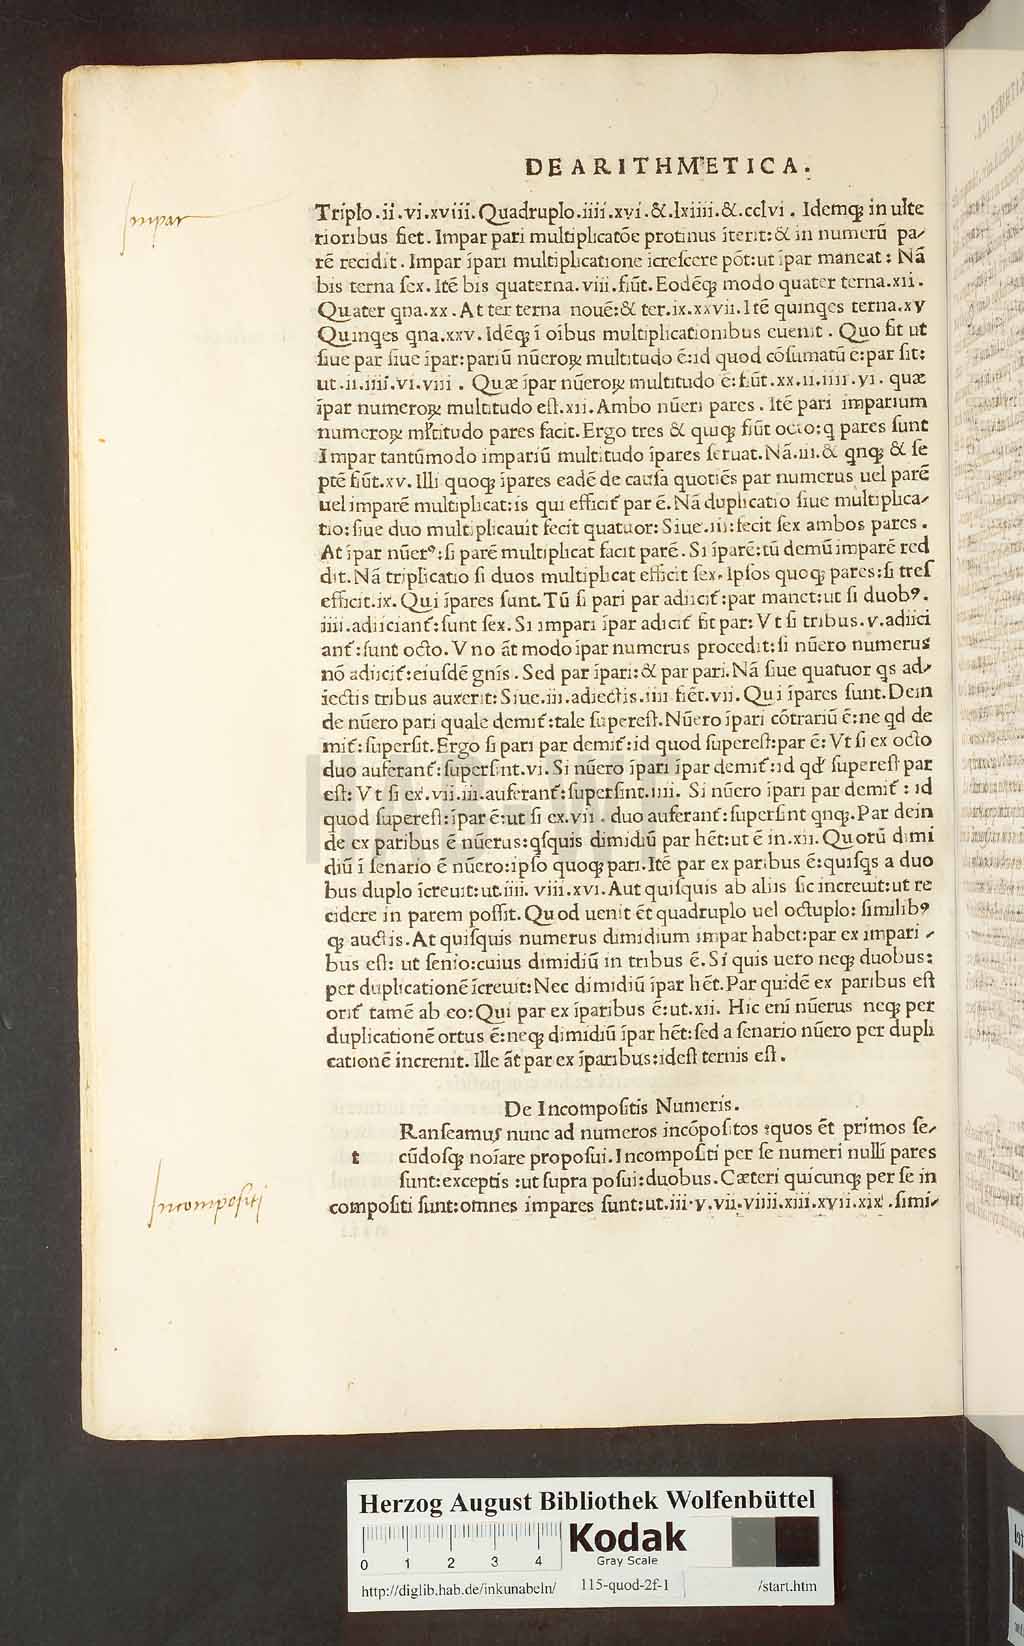 DE ARITHMETICA.
Impar
Triplo .ii. vi .xviii. Quadruplo .iiii. xvi. &. lxiiii. &. cclvi . Idemqꝫ in ulte
rioribus fiet. Impar pari multiplicatōe protinus īterit: & in numerū pa-
rē recidit . Impar īpari multiplicatione icreſcere pōt: ut ipar maneat : Nā
bis terna ſex. Itē bis quaterna. viii. fiūt. Eodēqꝫ modo quater terna .xii.
Quater qna. xx . At ter terna nouē: & ter. ix. xxvii. Itē quinqes terna. xv
Quinqes qna. xxv. Idēqꝫ ī oibus multiplicationibus euenit . Quo fit ut
ſiue par ſiue īpar: pariū nūeroꝝ multitudo ē: id quod cōſumatū ē: par ſit:
ut .ii. iiii. vi. viii . Quæ īpar nūeroꝝ multitudo ē: fiūt. xx. ii. iiii. vi. quæ
īpar numeroꝝ multitudo eſt. xii. Ambo nūeri pares . Itē pari imparium
numeroꝝ mltitudo pares facit. Ergo tres & quiqꝫ fiūt octo: q pares ſunt
Impar tantūmodo impariū multitudo īpares ſeruat. Nā. iii. & qnqꝫ & ſe
ptē fiūt. xv. Illi quoqꝫ īpares eadē de cauſa quotiēs par numerus uel parē
uel imparē multiplicat: is qui efficit᷑ par ē. Nā duplicatio ſiue multiplica-
tio: ſiue duo multiplicauit fecit quatuor: Siue. iii: fecit ſex ambos pares .
At īpar nūerꝰ: ſi parē multiplicat facit parē. Si īparē: tū demū imparē red
dit. Nā triplicatio ſi duos multiplicat efficit ſex. Ipſos quoqꝫ pares: ſi treſ
efficit. ix. Qui īpares ſunt. Tū ſi pari par adiicit᷑: par manet: ut ſi duobꝰ.
iiii. adiiciant᷑: ſunt ſex. Si impari īpar adicit᷑ fit par: Vt ſi tribus. v. adiici
ant᷑: ſunt octo. Vno āt modo īpar numerus procedit: ſi nūero numerus
nō adiicit᷑: eiuſdē gnīs . Sed par īpari: & par pari. Nā ſiue quatuor qs ad-
iectis tribus auxerit: Siue. iii. adiectis. iiii fiēt. vii. Qui īpares ſunt. Dein
de nūero pari quale demit᷑: tale ſupereſt. Nūero īpari cōtrariū ē: ne qd de
mit᷑: ſuperſit. Ergo ſi pari par demit᷑: id quod ſupereſt: par ē: Vt ſi ex octo
duo auferant᷑: ſuperſint. vi. Si nūero īpari īpar demit᷑: id qd ſupereſt par
eſt: Vt ſi ex. vii. iii. auferant᷑: ſuperſint. iiii. Si nūero ipari par demit᷑ : id
quod ſupereſt: īpar ē: ut ſi ex. vii . duo auferant᷑: ſuperſint qnqꝫ. Par dein
de ex paribus ē nūerus: qſquis dimidiū par hēt: ut ē in. xii. Quorū dimi
diū ī ſenario ē nūero: ipſo quoqꝫ pari. Itē par ex paribus ē: quiſqs a duo
bus duplo īcreuit: ut. iiii. viii. xvi. Aut quiſquis ab aliis ſic increuit: ut re
cidere in parem poſſit. Quod uenit ēt quadruplo uel octuplo: ſimilibꝰ
qꝫ auctis. At quiſquis numerus dimidium impar habet: par ex impari -
bus eſt: ut ſenio: cuius dimidiū in tribus ē. Si quis uero neqꝫ duobus:
per duplicationē īcreuit: Nec dimidiū īpar hēt. Par quidē ex paribus eſt
orit᷑ tamē ab eo: Qui par ex īparibus ē: ut. xii. Hic enī nūerus neqꝫ per
duplicationē ortus ē: neqꝫ dimidiū īpar hēt: ſed a ſenario nūero per dupli
cationē increnit. Ille āt par ex īparibus: ideſt ternis eſt .
De Incompoſitis Numeris.
Ranſeamuſ nunc ad numeros incōpoſitos :quos ēt primos ſe-
t cūdoſqꝫ noīare propoſui. Incompoſiti per ſe numeri nullī pares
ſunt: exceptis :ut ſupra poſui: duobus. Cæteri quicunqꝫ per ſe in
Incompositi
compoſiti ſunt: omnes impares ſunt: ut. iii. v. vii. viiii. xiii. xvii. xix .ſimi-
HAB-WF
Herzog August Bibliothek Wolfenbüttel
0 1 2 3 4
Kodak
Gray Scale
http://diglib.hab.de/inkunabeln/ 115-quod-2f-1 /start.htm